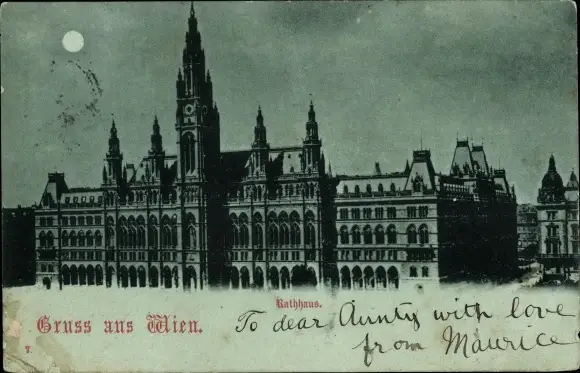 Rathhaus.
Gruss aus Wien.
To dear Aunty with love
from Maurice
7.